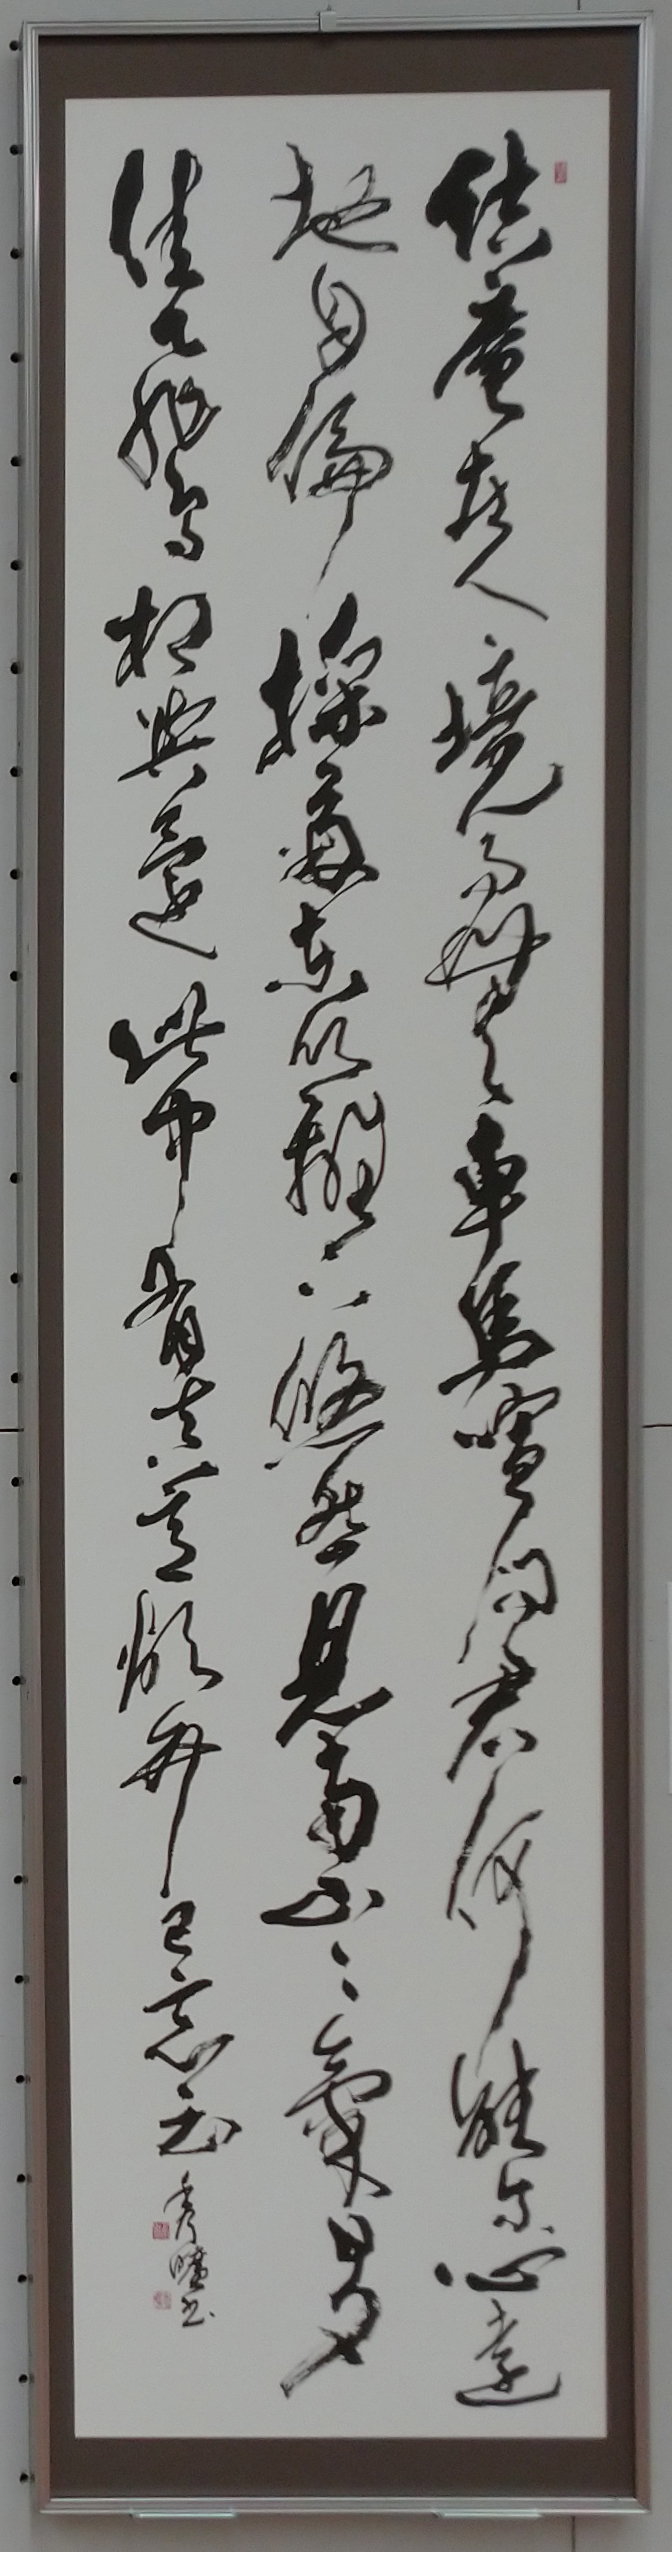 結廬在人境而無車馬喧問君何能尓心遠
地自偏採菊東籬下悠然見南山々氣日夕
佳飛鳥相與還此中有真意欲辨已忘言 秀書